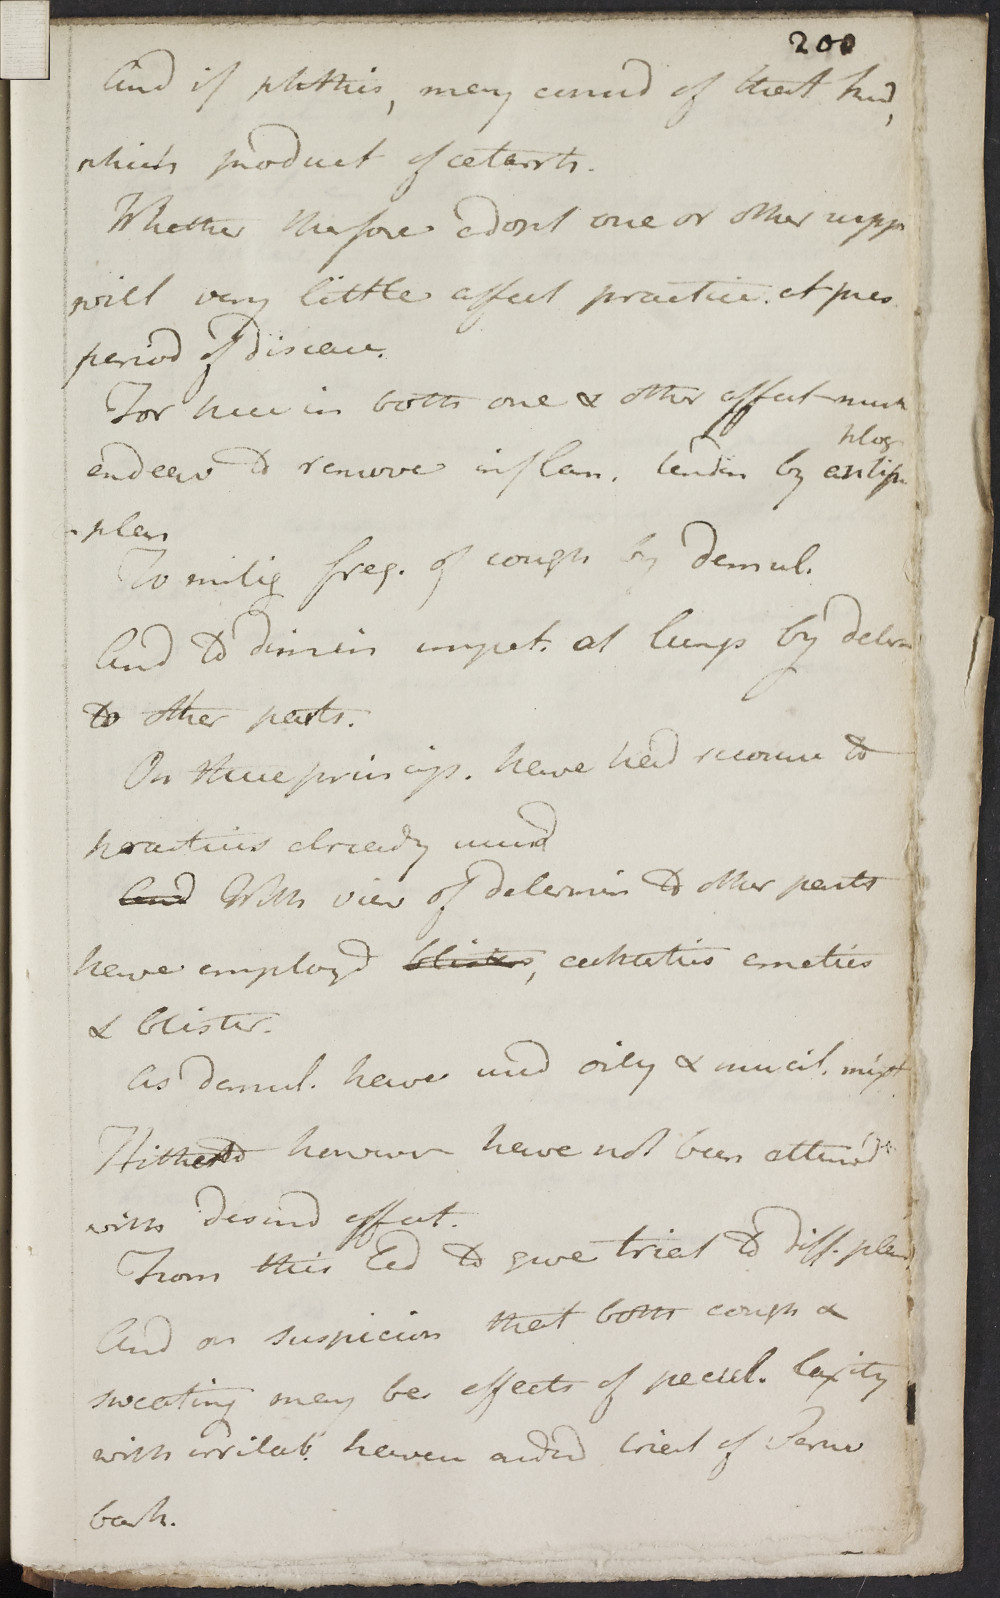 200
And if phthisis, may conud of that kind,
which product of catarrh.
Whether therefore adopt one or other supp
will very little affect practice. at pres
period of disease.
For here in both one & other affect must
endeav to remove inflam. tenden by antiph
hlog
plan
To mitig freq. of cough by demul.
And to dimin impet. at lungs by determ
to other parts.
On these princip. have had recourse to
practices already
And With view of determin to other parts
have employd blisters, cathartics emetics
& blister.
As demul. have used oily & mucil. mixt
Hitherto however have not been attend
with desired effect.
From this led to give trial to diff. plan
And on suspicion that both cough &
sweating may be effects of pecul. laxity
with irritab. trial of Peruv
bark.